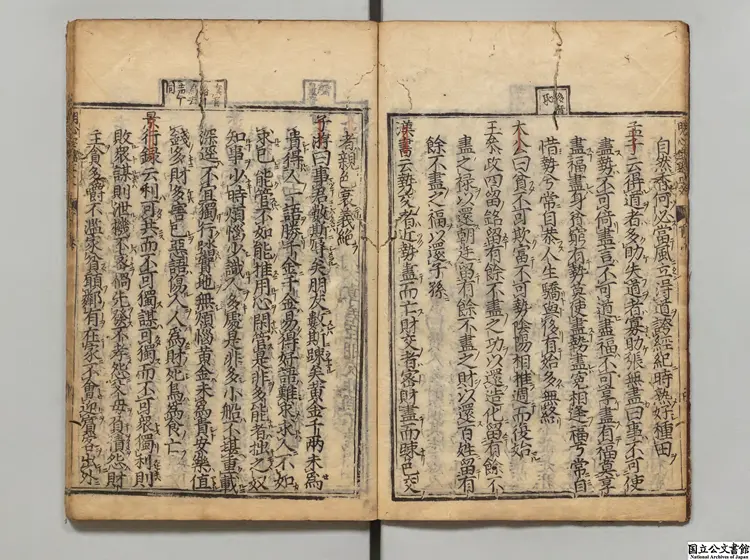 自然香何必當風立得道誇經紀時熟好種田
孟子云得道者多助失道者寡助張無盡曰事不可使
盡勢不可倚盡言不可道盡福不可享盡有福莫享
盡福盡身貧窮有勢莫使盡勢盡冤相逢福兮常自
惜勢兮常自恭人生驕與侈有始多無終
太公曰貧不可欺富不可勢陰陽相推週而復始
王參政四留銘留有餘不盡之功以還造化留有餘不
盡之祿以還朝廷留有餘不盡之財以還百姓留有
餘不盡之福以還子孫
漢書云勢交者近勢盡而亡財交者密財盡而疎色交
者親色衰義絕
子游曰事君數斯辱矣朋友數斯疎矣黃金千兩未為
貴得人一語勝千金千金易得好語難求求人不如
求已能管不如能推用心閑管是非多能者拙之奴
知事少時煩惱少識人多處是非多小船不堪重載
深逕不宜獨行踏實地無煩惱黃金未為貴安樂值
錢多財多害已惡語傷人人為財死鳥為食亡
景行錄云利可共而不可獨謀可獨而不可衆獨利則
敗衆謀則泄機不密禍先發不孝怨父母負債怨財
主貪多嚼不濫家貧願鄰有在家不會迎賓客出外
国立公文書館
National Archives of Japan